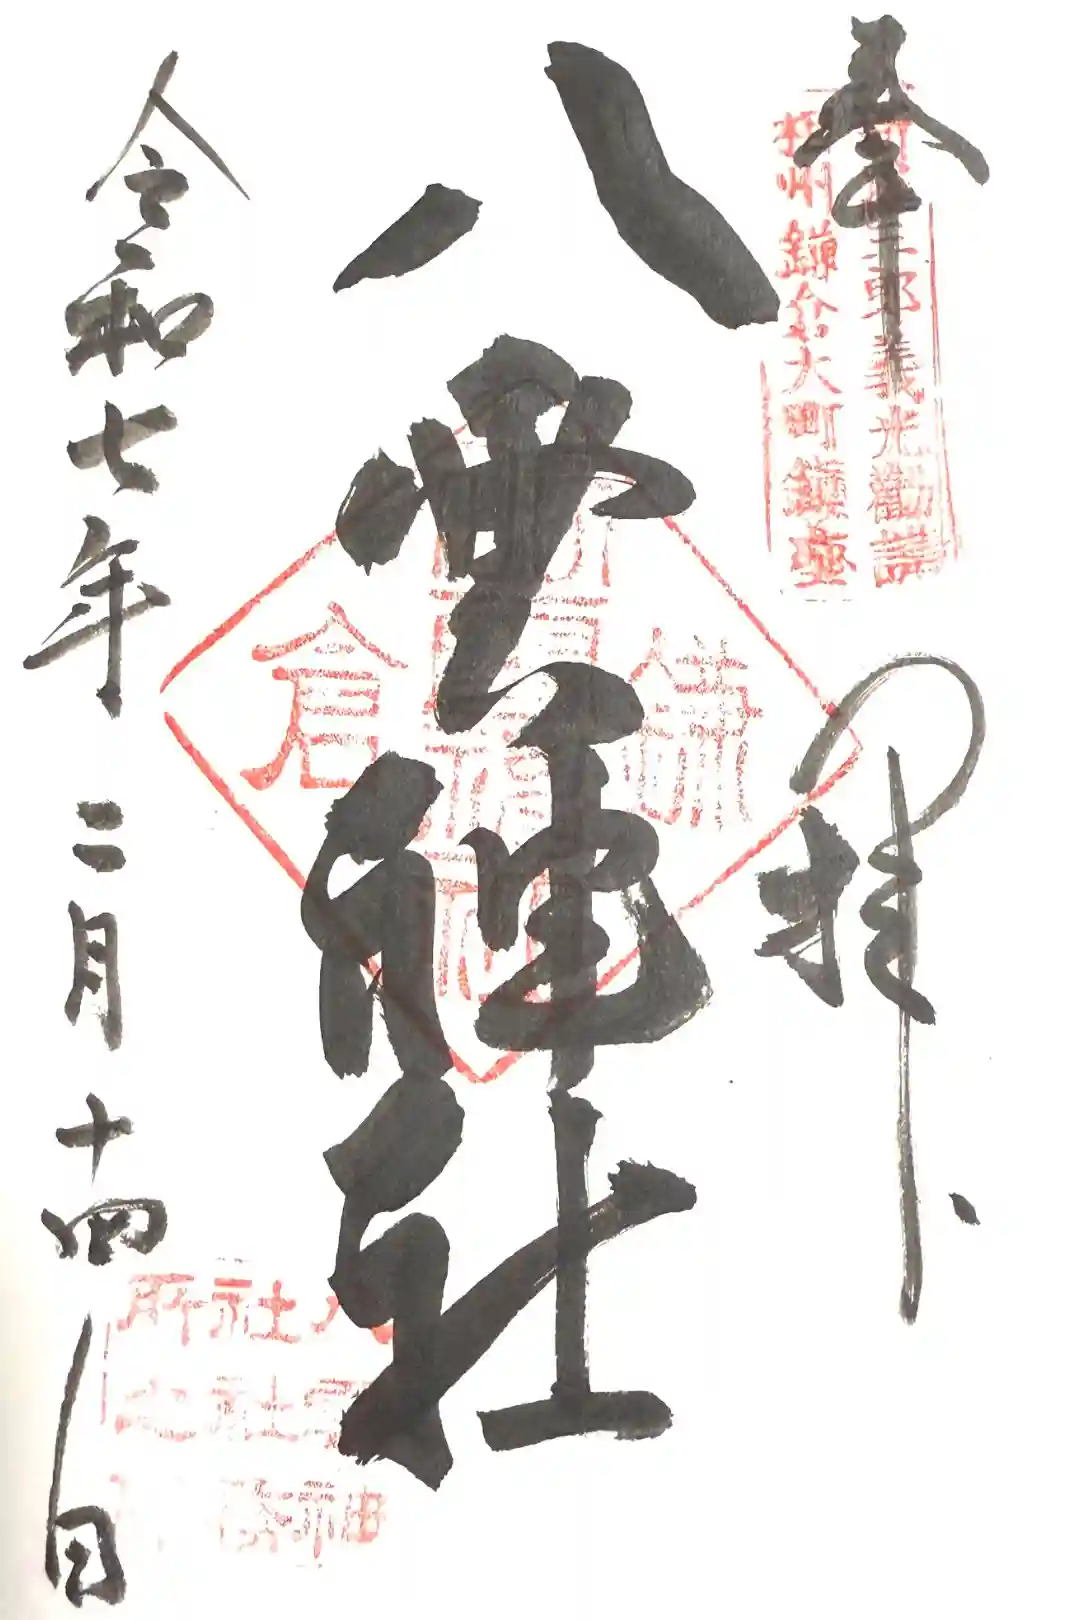 奉拝
新羅三郎義光勧請
相州鎌倉大町鎮座
八雲神社
鎌
倉
令和七年二月十四日
八雲神
社社務
所之印